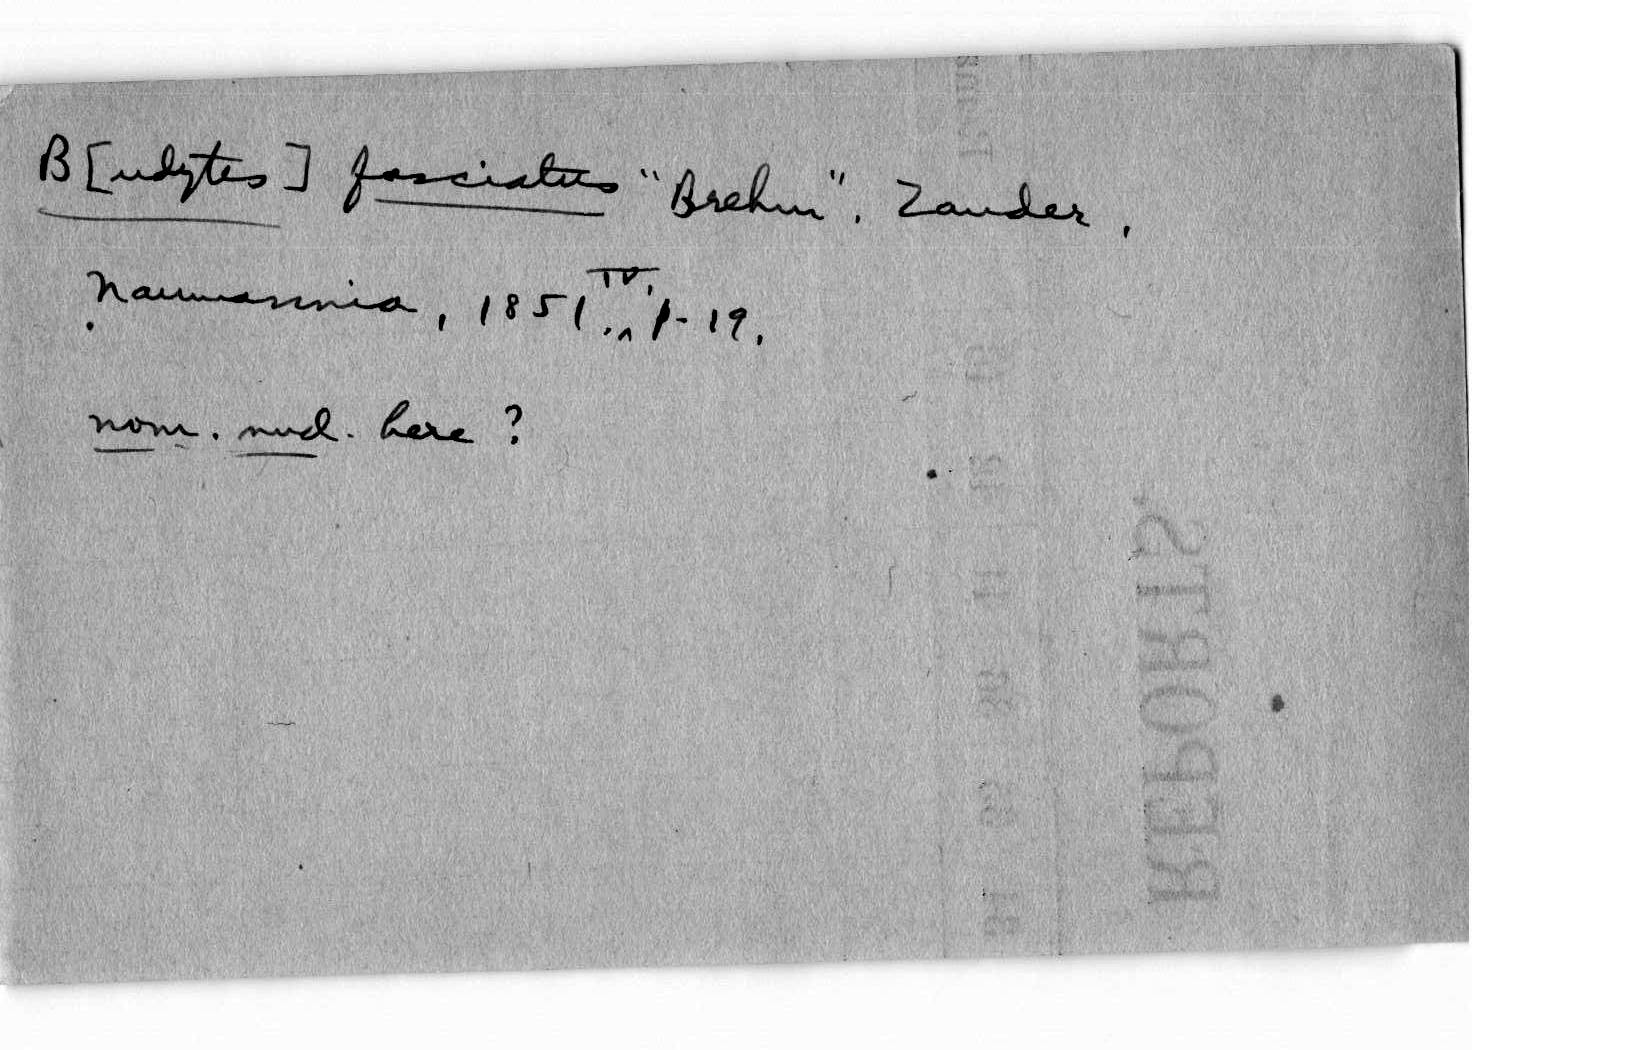 B[udytes] fasciatus "Brehm". Zander,
Naumannia, 1851, IV, p. 19.
nom. nud. here?
REPORTS